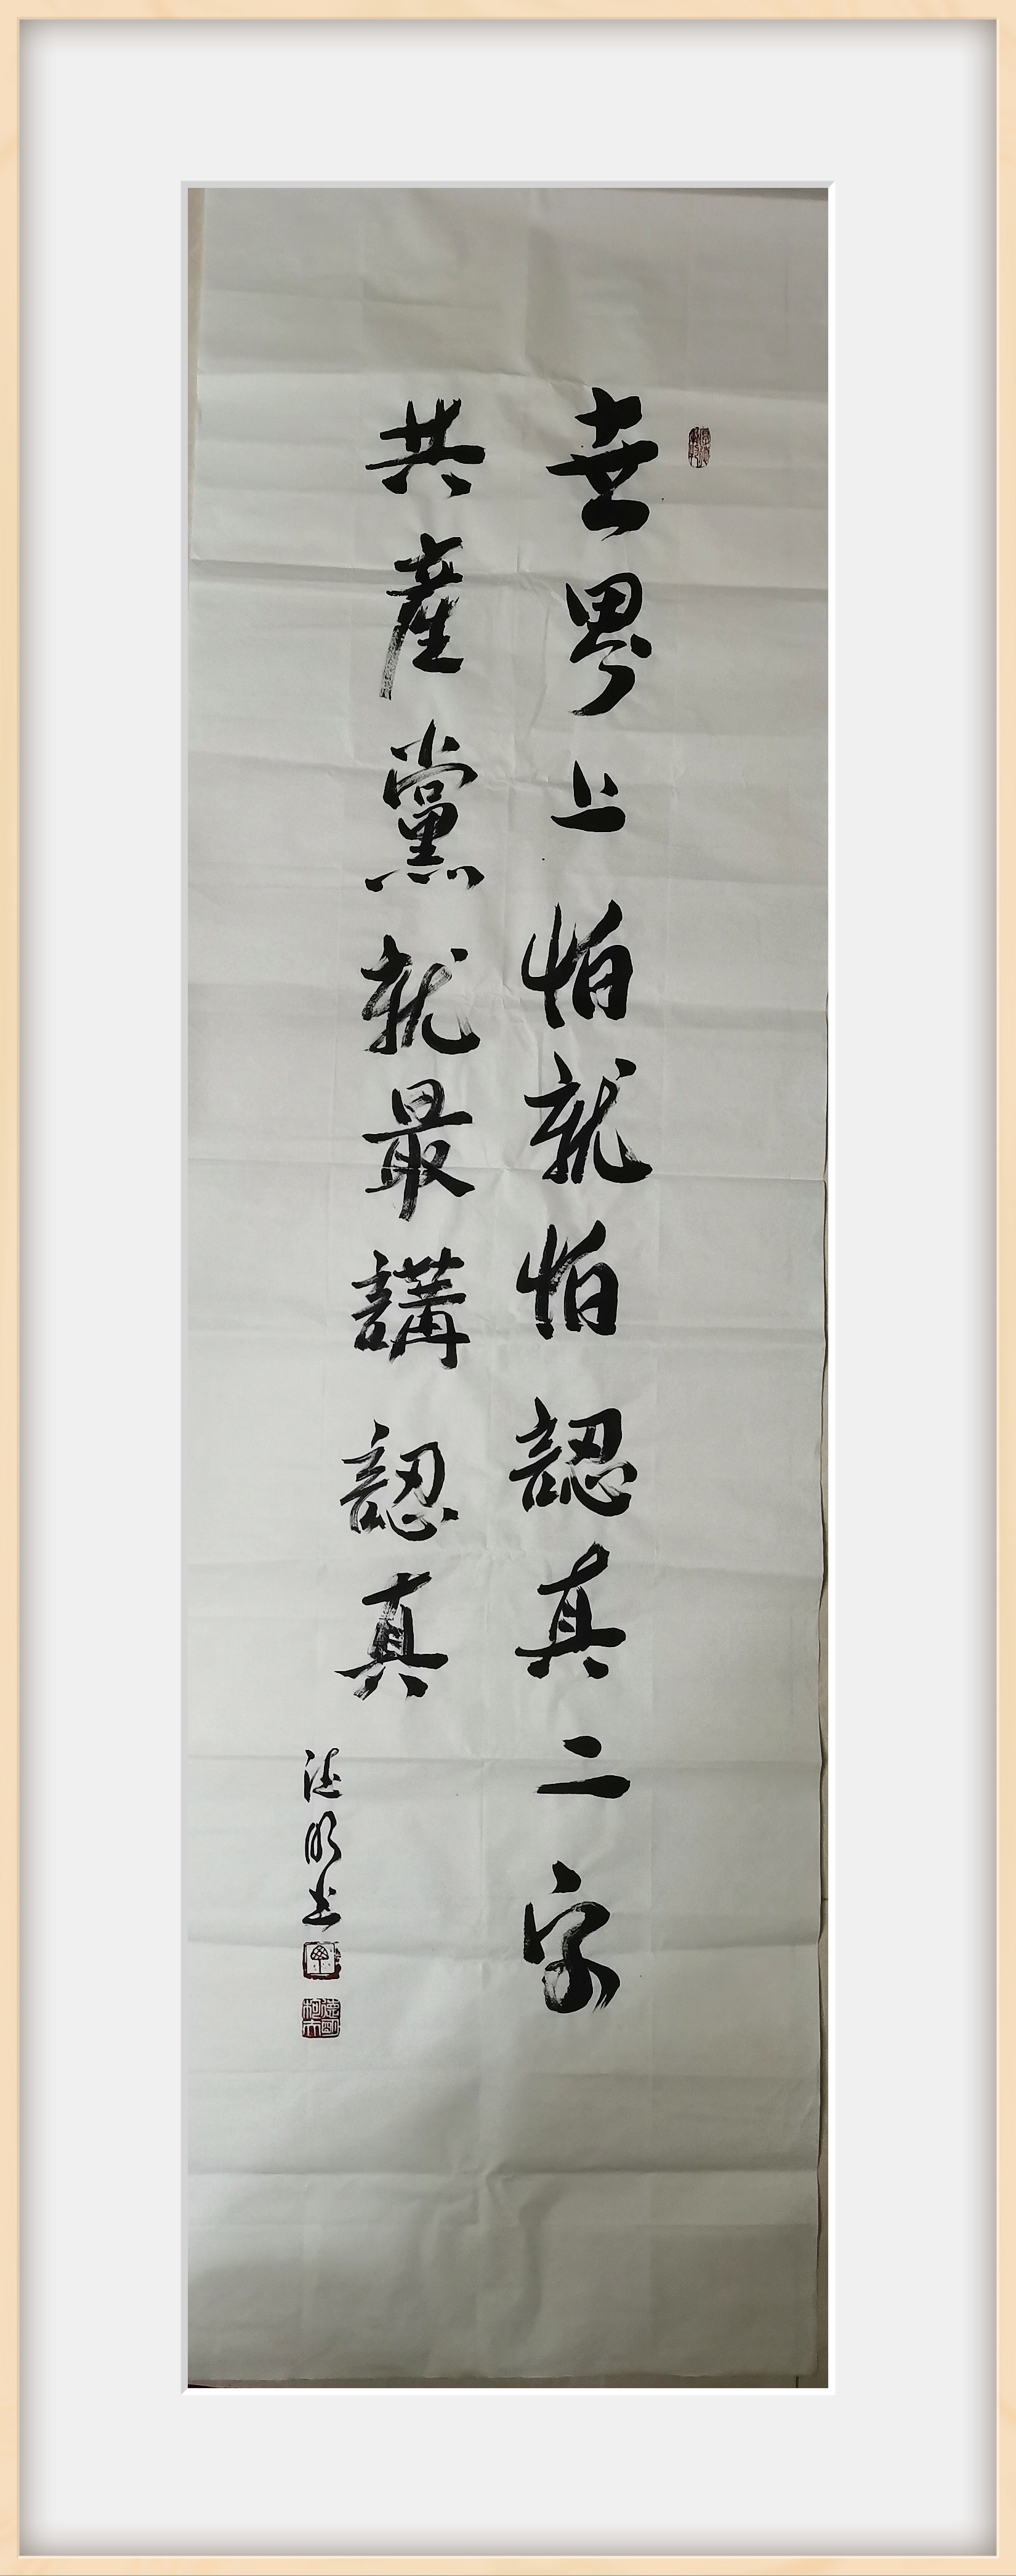 世界上怕就怕認真二字
共產黨就最講認真
德明书